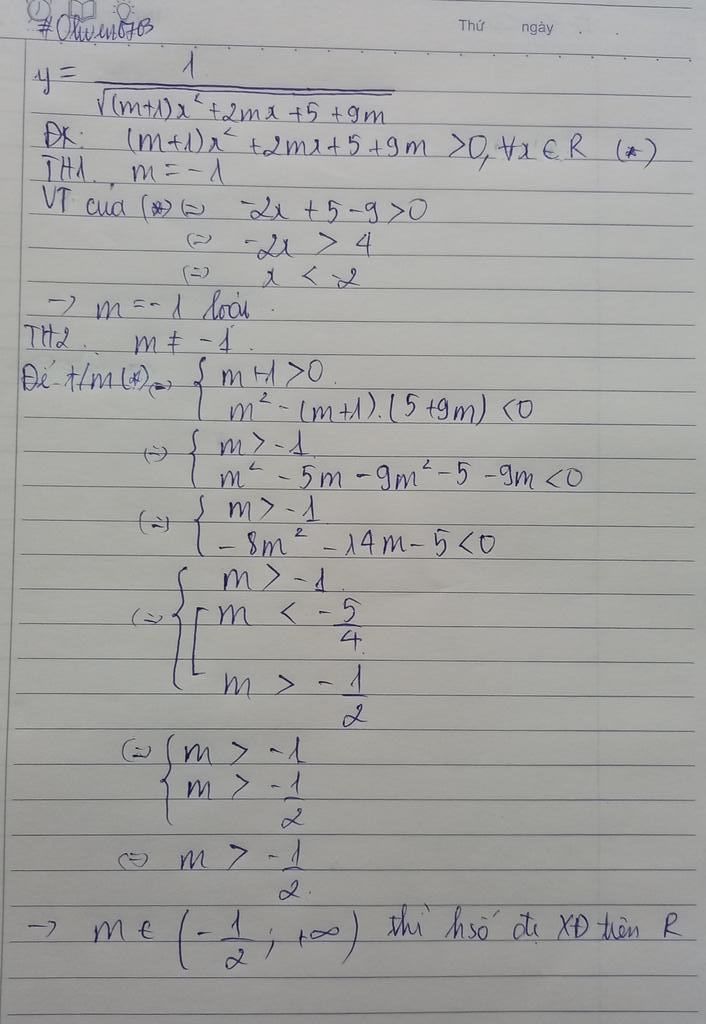 Thứ ngày . .
y = 1/√((m+1)x² + 2mx + 5 + 9m)
ĐK: (m+1)x² + 2mx + 5 + 9m > 0, ∀x ∈ R (*)
TH1. m = -1
VT của (*) (=) -2x + 5 - 9 > 0
(=) -2x > 4
(=) x < -2
-> m = -1 loại.
TH2. m ≠ -1
Để t/m (*) (=) { m+1 > 0
m² - (m+1).(5+9m) < 0
(=) { m > -1
m² - 5m - 9m² - 5 - 9m < 0
(=) { m > -1
-8m² - 14m - 5 < 0
(=) { m > -1
[ m < -5/4
m > -1/2
(=) { m > -1
m > -1/2
(=) m > -1/2
-> m ∈ (-1/2 ; +∞) thì hsố đc XĐ trên R